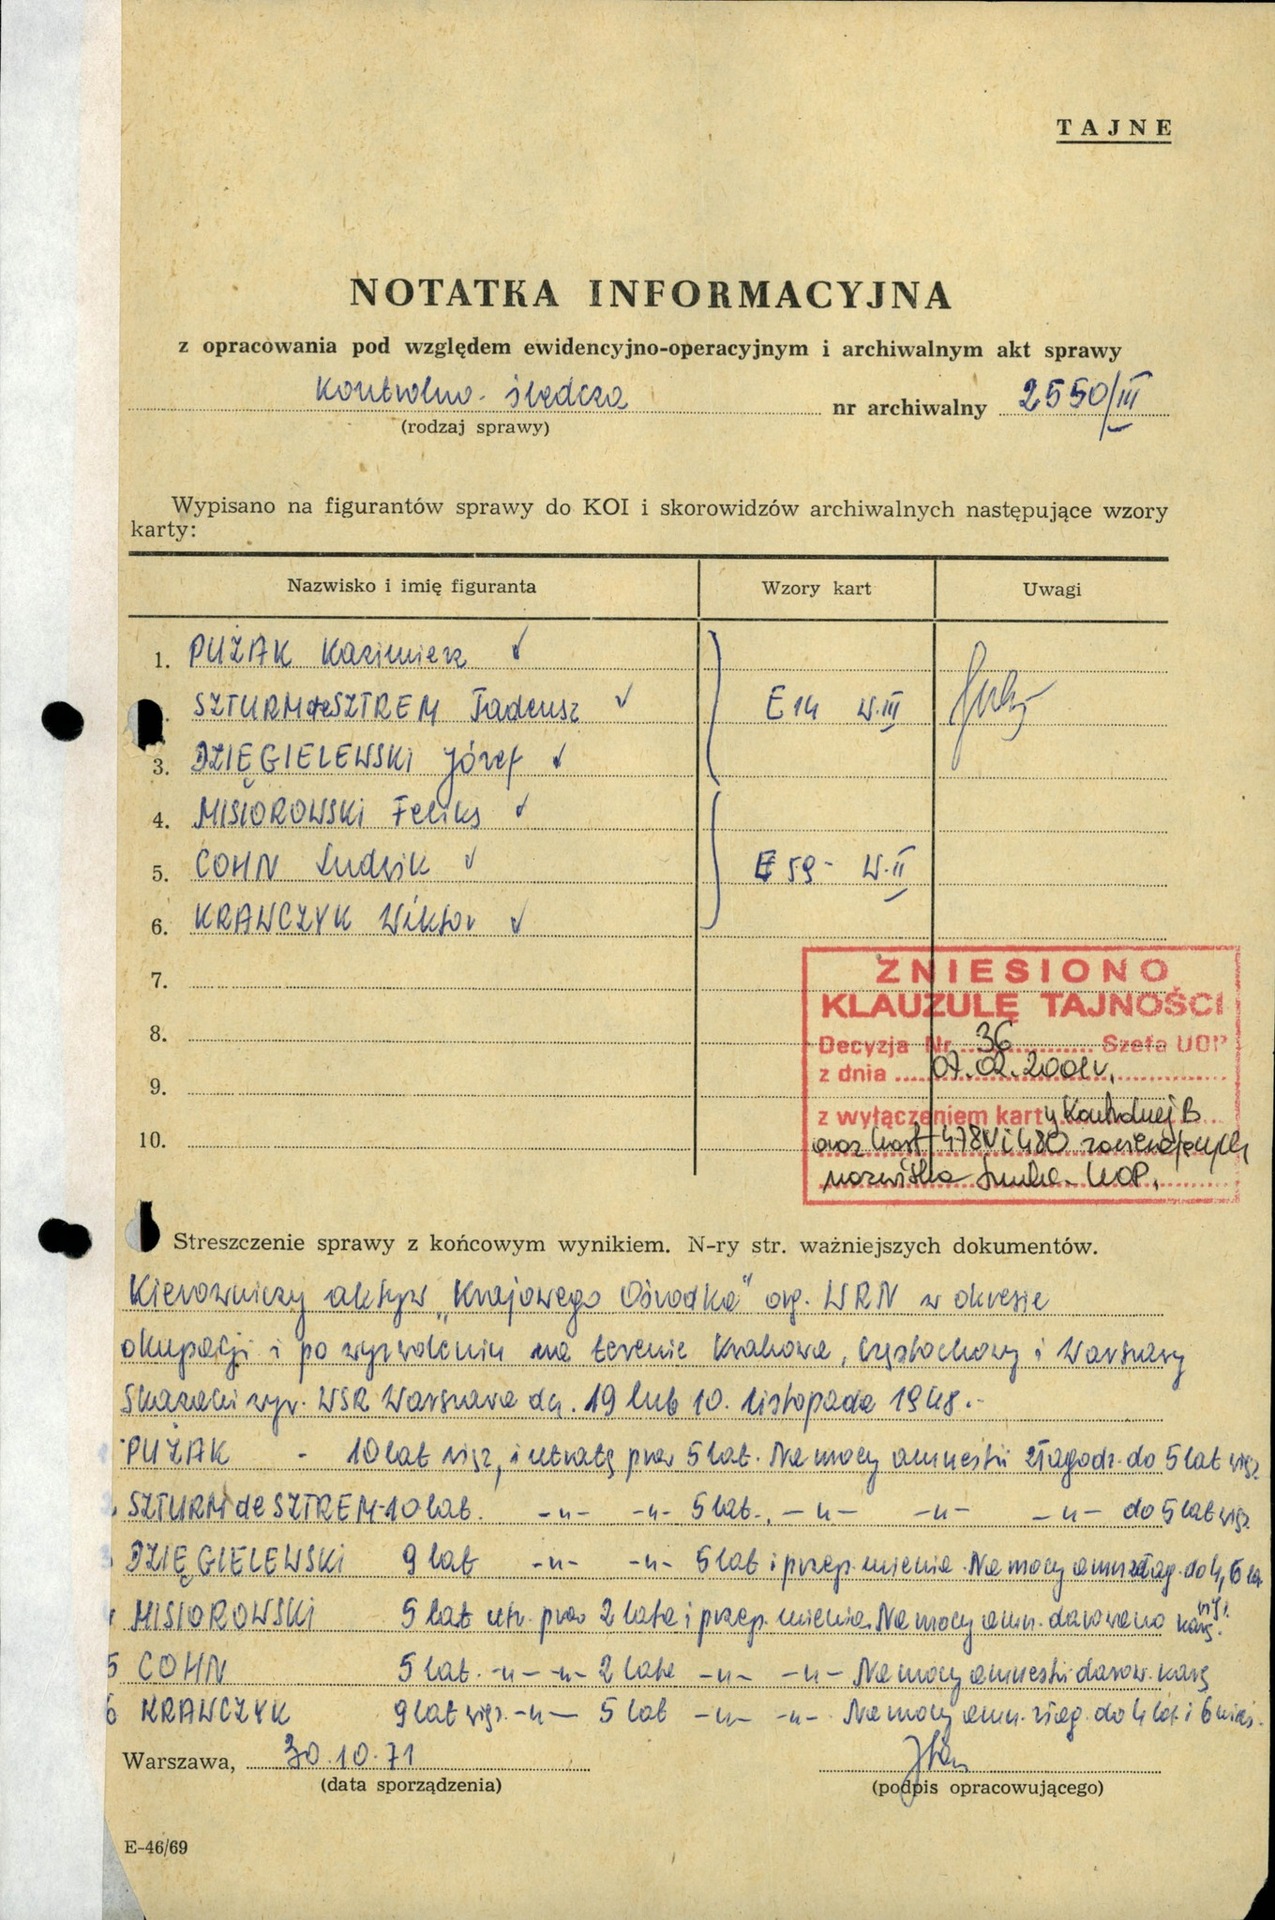 TAJNE
NOTATKA INFORMACYJNA
z opracowania pod względem ewidencyjno-operacyjnym i archiwalnym akt sprawy
kontrolno-śledcza nr archiwalny 2550/III
(rodzaj sprawy)
Wypisano na figurantów sprawy do KOI i skorowidzów archiwalnych następujące wzory
karty:
Nazwisko i imię figuranta Wzory kart Uwagi
1. PUŻAK Kazimierz
SZTURM de SZTREM Tadeusz E 14 W.III
3. DZIĘGIELEWSKI Józef
4. MISIOROWSKI Feliks
5. COHN Ludwik E 59- W.II
6. KRAWCZYK Wiktor
7.
8.
9.
10.
ZNIESIONO
KLAUZULĘ TAJNOŚCI
Decyzja Nr 36 Szefa UOP
z dnia 07.02.2001r.
z wyłączeniem karty Kontrolnej B
oraz kart 478V i 480 zawierających
nazwiska funkc. UOP.
Streszczenie sprawy z końcowym wynikiem. N-ry str. ważniejszych dokumentów.
Kierowniczy aktyw „Krajowego Ośrodka" org. WRN w okresie
okupacji i po wyzwoleniu na terenie Krakowa, Częstochowy i Warszawy
Skazani wyr. WSR Warszawa dn. 19 lub 10. listopada 1948.-
PUŻAK - 10 lat więz, i utratę praw 5 lat. Na mocy amnestii złagodz. do 5 lat więz
SZTURM de SZTREM-10 lat. -"- -"- 5 lat., -"- -"- -"- do 5 lat więz.
3 DZIĘGIELEWSKI 9 lat -"- -"- 5 lat i przep. mienia. Na mocy amn złag. do 4,6 lat
MISIOROWSKI 5 lat utr. praw 2 lata i przep. mienia. Na mocy amn. darowano karę
5 COHN 5 lat. -"- -"- 2 lata -"- -"- Na mocy amnestii darow. karę
6 KRAWCZYK 9 lat więz. -"- 5 lat -"- -"- Na mocy amn. złag. do 4 lat i 6 mies.
Warszawa, 30.10.71
(data sporządzenia) (podpis opracowującego)
E-46/69